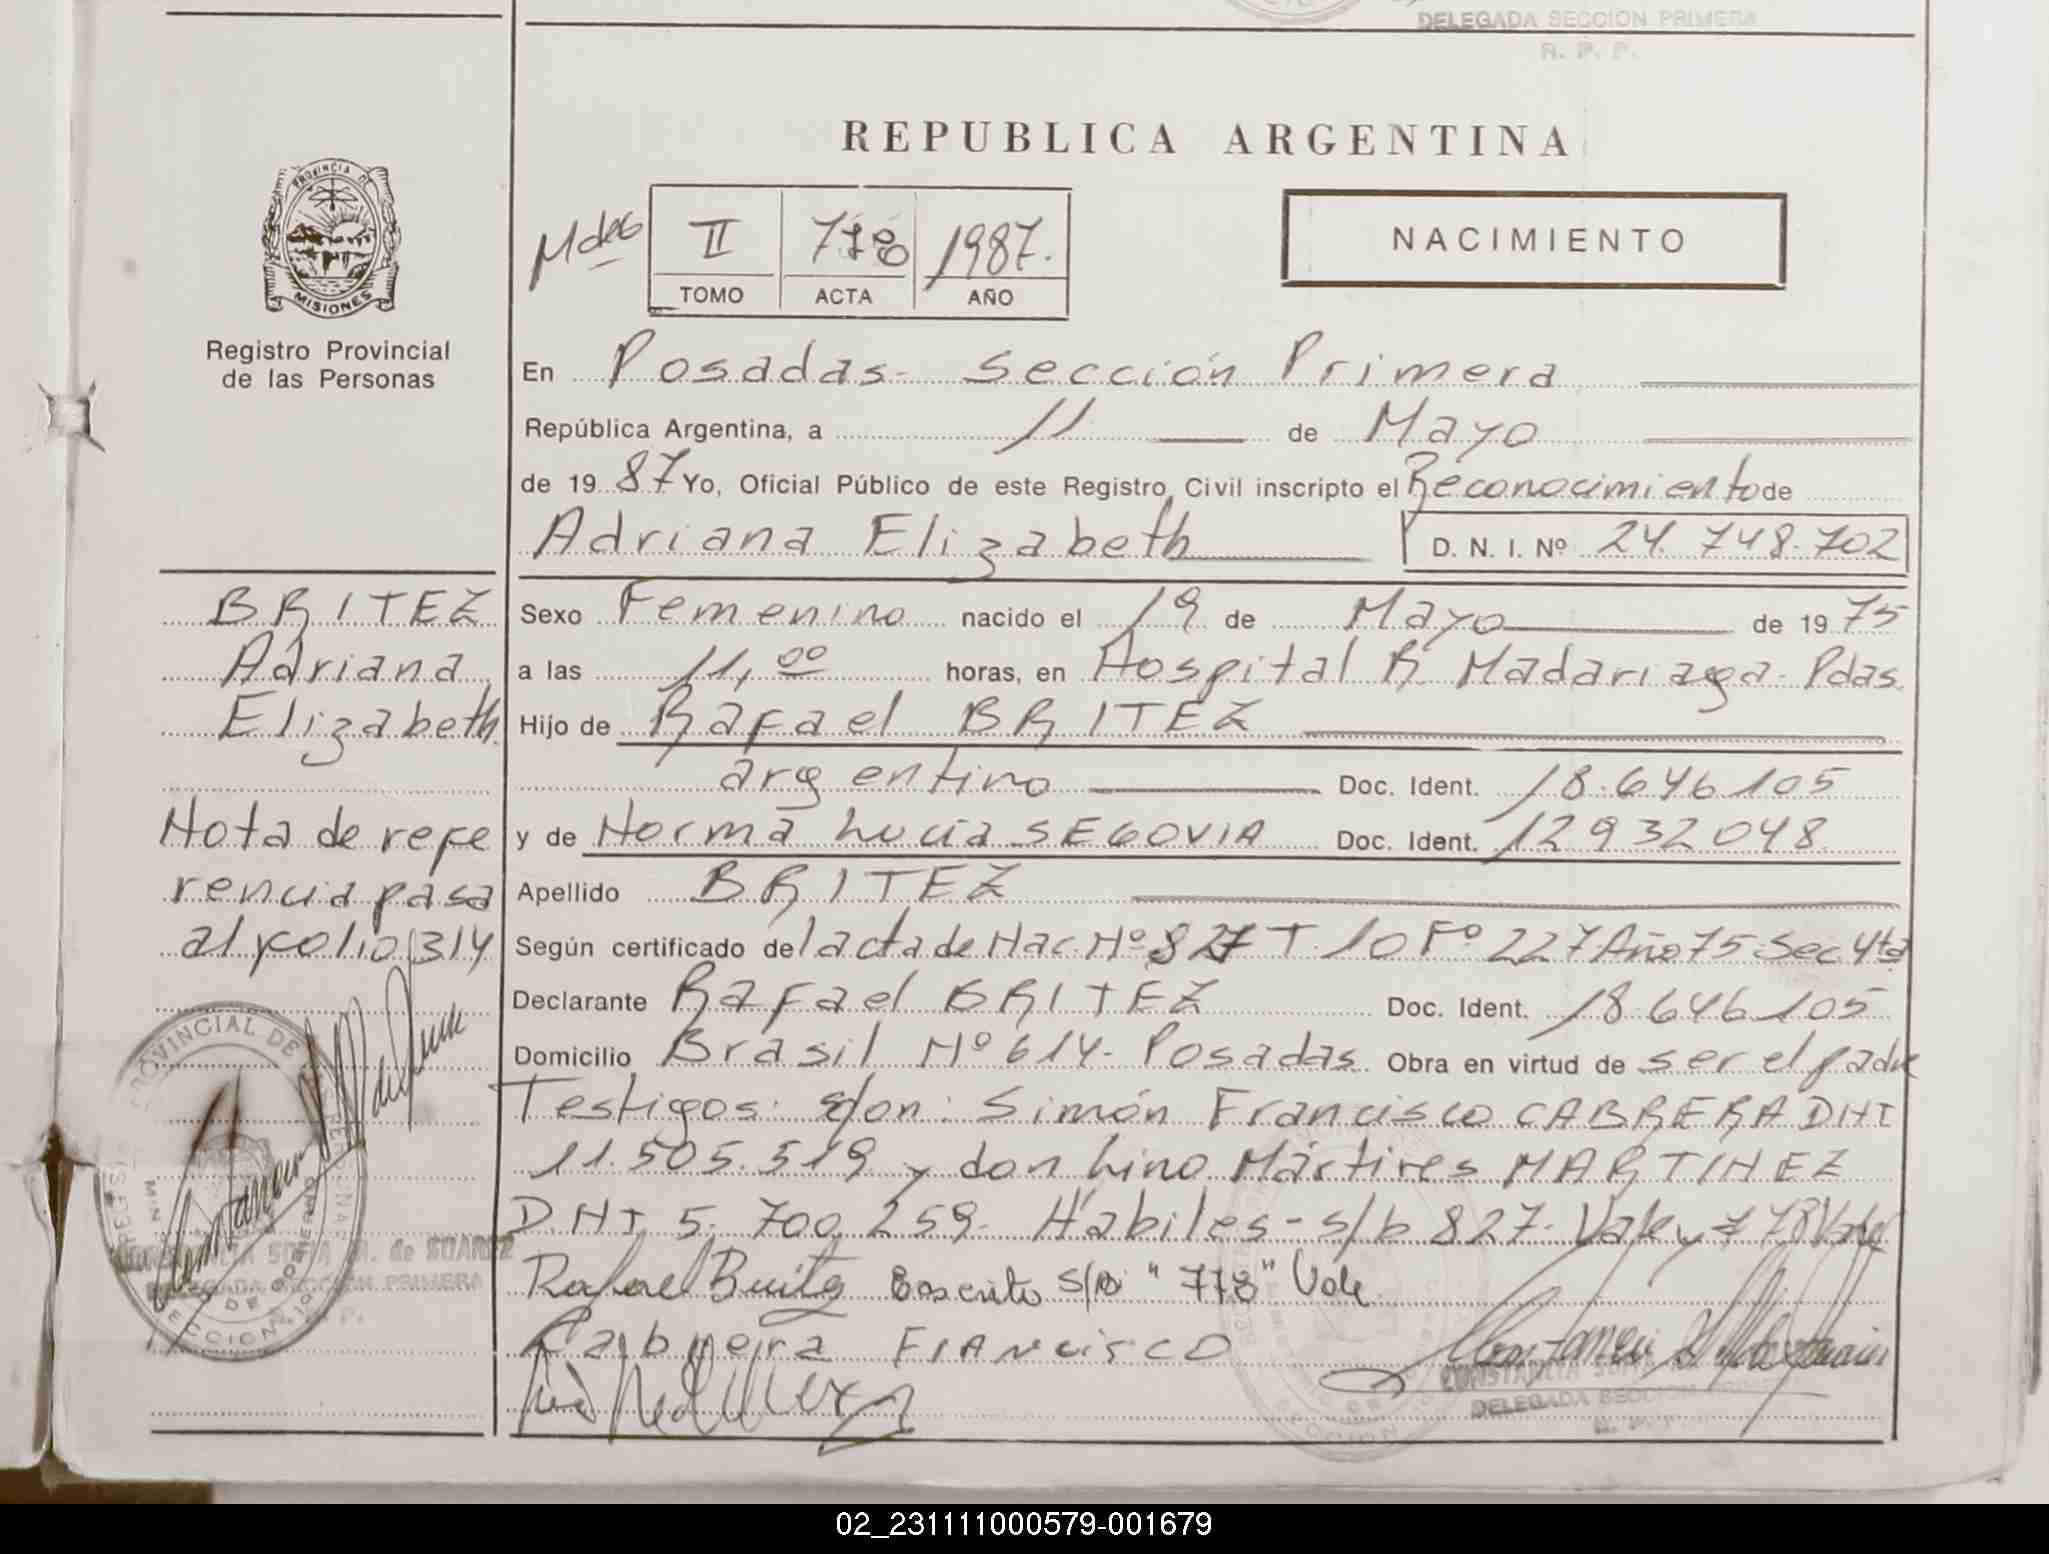 DELEGADA SECCION PRIMERA
R. P. P.
REPUBLICA ARGENTINA
PROVINCIA DE
MISIONES
Registro Provincial
de las Personas
II 778 1987.
TOMO ACTA AÑO
NACIMIENTO
En Posadas - Sección Primera
República Argentina, a 11 de Mayo
de 1987 Yo, Oficial Público de este Registro Civil inscripto el Reconocimiento de
Adriana Elizabeth D. N. I. Nº 24.748.702
BRITEZ
Adriana
Elizabeth
Nota de refe
rencia pasa
al folio 314
Sexo Femenino nacido el 19 de Mayo de 1975
a las 11,00 horas, en Hospital R. Madariaga - Pdas.
Hijo de Rafael BRITEZ
argentino Doc. Ident. 18.646.105
y de Norma Lucia SEGOVIA Doc. Ident. 12.932.048
Apellido BRITEZ
Según certificado del acta de Nac. Nº 827 T. 10 Fº 227 Año 75 Sec 4ta
Declarante Rafael BRITEZ Doc. Ident. 18.646.105
Domicilio Brasil Nº 614 - Posadas Obra en virtud de ser el padre
Testigos: don: Simón Francisco CABRERA DNI
11.505.519 y don Lino Mártires MARTINEZ
DNI 5.700.259 - Hábiles - s/b 827 - Vale y 778 Vale
Rafael Britez Escrito s/b "778" Vale
Cabrera Francisco
CONSTANCIA SOFIA M. de SUAREZ
DELEGADA SECCION PRIMERA
CONSTANCIA
DELEGADA SECCION
02_231111000579-001679